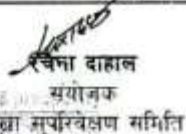 रचना दाहाल
संयोजक
सुपरिवेक्षण समिति